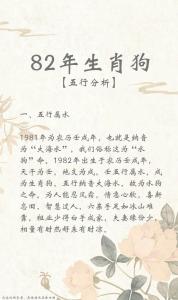 82年生肖狗
【五行分析】
一、五行属水
1981年为农历壬戌年，也就是纳音
为“大海水”，我们俗称这为“水
狗”命，1982年出生于农历壬戌年，
天干为壬，地支为戌，壬五行属水，戌
为生肖狗，五行纳音大海水，故为水狗
之命。为人能忍风霜，情急心软，喜新
忘旧，智慧过人，六亲手足如冰山难
靠，祖业少得白手成家，夫妻缘份少，
相量有财然好具有财凉。